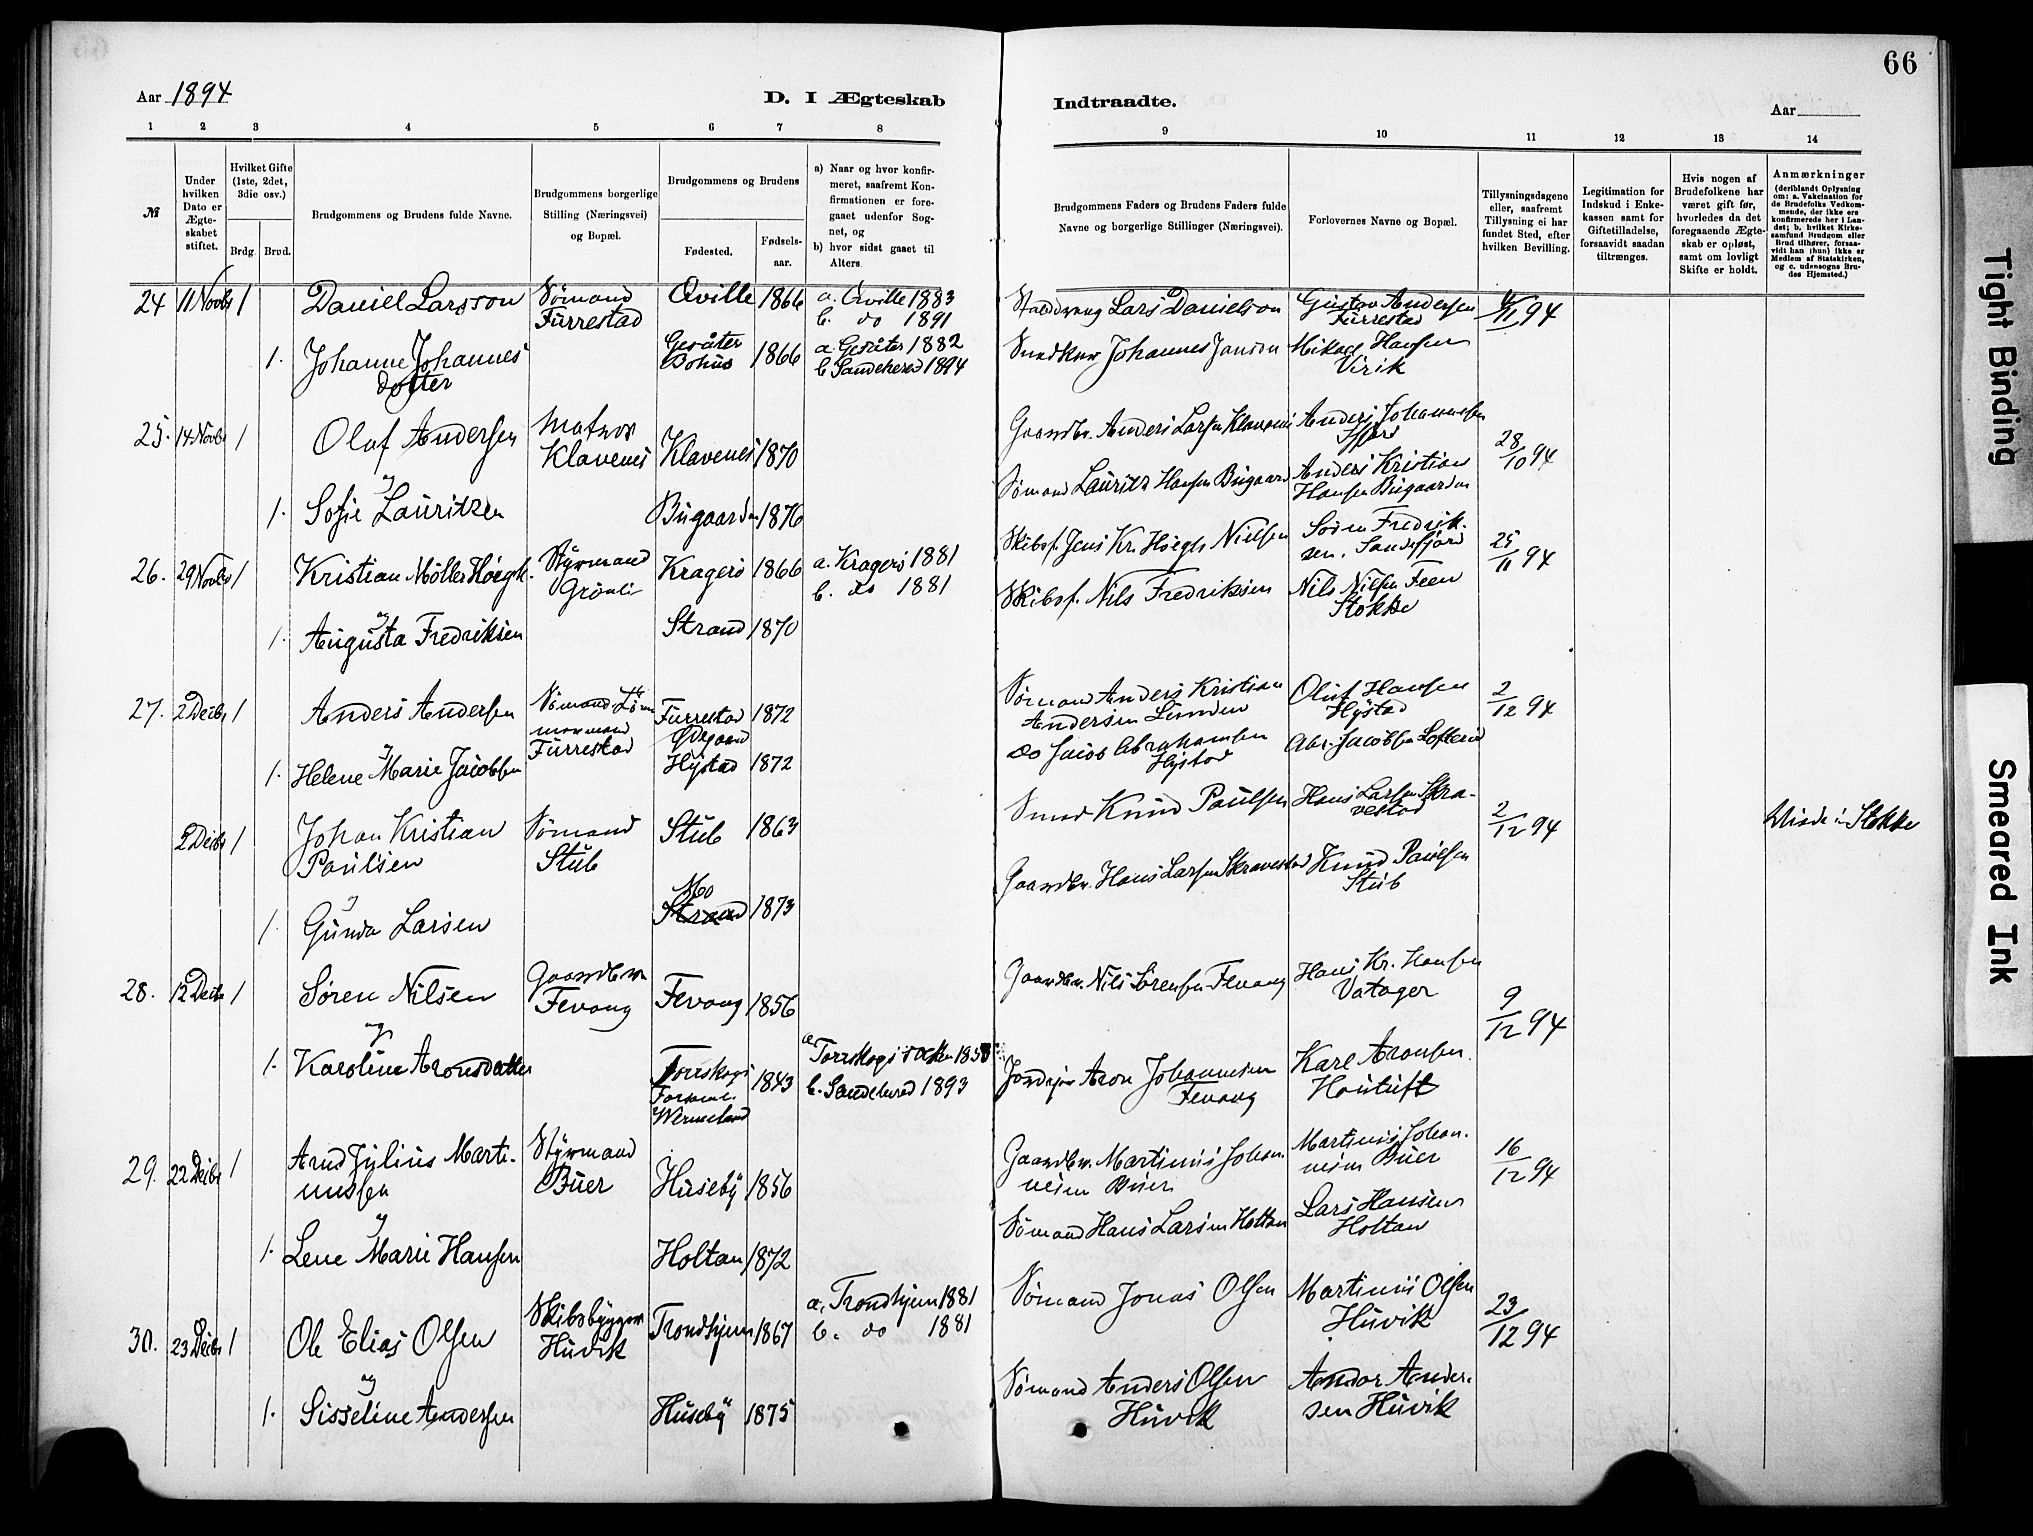 66
Aar 1894
D. I Ægteskab
Indtraadte.
Aar
1 2 3 4 5 6 7 8 9 10 11 12 13 14
№
Under hvilken Dato er Ægteskabet stiftet.
Hvilket Gifte (1ste, 2det, 3die osv.)
Brdg. Brud.
Brudgommens og Brudens fulde Navne.
Brudgommens borgerlige Stilling (Næringsvei) og Bopæl.
Brudgommens og Brudens
Fødested.
Fødselsaar.
a) Naar og hvor konfirmeret, saafremt Konfirmationen er foregaaet udenfor Sognet, og
b) hvor sidst gaaet til Alters.
Brudgommens Faders og Brudens Faders fulde Navne og borgerlige Stillinger (Næringsvei).
Forlovernes Navne og Bopæl.
Tillysningsdagene eller, saafremt Tillysning ei har fundet Sted, efter hvilken Bevilling.
Legitimation for Indskud i Enkekassen samt for Giftetilladelse, forsaavidt saadan tiltrænges.
Hvis nogen af Brudefolkene har været gift før, hvorledes da det foregaaende Ægteskab er opløst, samt om lovligt Skifte er holdt.
Anmærkninger
(deriblandt Oplysning om: a. Vakcination for de Brudefolks Vedkommende, der ikke ere konfirmerede her i Landet; b. hvilket Kirkesamfund Brudgom eller Brud tilhører, forsaavidt han (hun) ikke er Medlem af Statskirken, og c. udensogns Brudes Hjemsted.)
24 11 Novbr 1 Daniel Larsson Sømand Furrestad Qville 1866 a. Qville 1883 b. do 1891 Lars Danielson Gustav Andersen Furrestad 94
1. Johanne Johannesdotter Bohus 1866 a. 1882 b. Sandeherred 1894 Johannes Janson Mikael Hansen Virik
25. 14 Novbr 1 Olaf Andersen Matros Klavenes Klavenes 1870 Gaardbr. Anders Larsen Klavenes Anders Johannesen 28/10 94
og
1. Sofie Lauritzen Bugaarden 1876 Sømand Lauritz Hansen Bugaard Anders Kristian Hansen Bugaarden
26. 29 Novbr 1 Kristian Møller Høegh Styrmand Grønli Kragerø 1866 a. Kragerø 1881 b. do 1881 Skibsf. Jens Kr. Høegh Nielsen Søren Fredriksen, Sandefjord 25/11 94
og
1. Augusta Fredriksen Strand 1870 Skibsf. Nils Fredriksen Nils Nilsen Feen Stokke
27. 2 Decbr 1 Anders Andersen Sømand Furrestad Furrestad Ødegaard 1872 Sømand Anders Kristian Andersen Linden Oluf Hansen Hystad 2/12 94
og
1. Helene Marie Jacobsen Hystad 1872 do Jacob Abrahamsen Hystad Abr. Jacobsen
2 Decbr 1 Johan Kristian Paulsen Sømand Stub Stub 1863 Knud Paulsen Hans Larsen Skravestad 2/12 94 Viede i Stokke
og
1. Gunda Larsen Mo 1873 Gaardbr. Hans Larsen Skravestad Knud Paulsen Stub
28. 12 Decbr 1 Søren Nilsen Gaardbr. Fevang Fevang 1856 Gaardbr. Nils Sørensen Fevang Hans Kr. Hansen Vatager 9/12 94
og
1. Karoline Aronsdatter Torrskogs Wermeland 1843 a. Torrskogs b. Sandeherred 1893 Aron Johannesen Fevang Karl Aronsen
29. 22 Decbr 1 Arnd Julius Martinussen Styrmand Buer Huseby 1856 Gaardbr. Martinus Johannesen Buer Martinus Johannesen Buer 16/12 94
og
1. Lene Marie Hansen Holtan 1872 Sømand Hans Larsen Holtan Lars Hansen Holtan
30. 23 Decbr 1 Ole Elias Olsen Skibsbygger Huvik Trondhjem 1867 a. Trondhjem 1881 b. do 1881 Sømand Jonas Olsen Martinus Olsen Huvik 23/12 94
og
1. Sisseline Andersen Huseby 1875 Sømand Anders Olsen Huvik Andor Andersen Huvik
Tight Binding
Smeared Ink